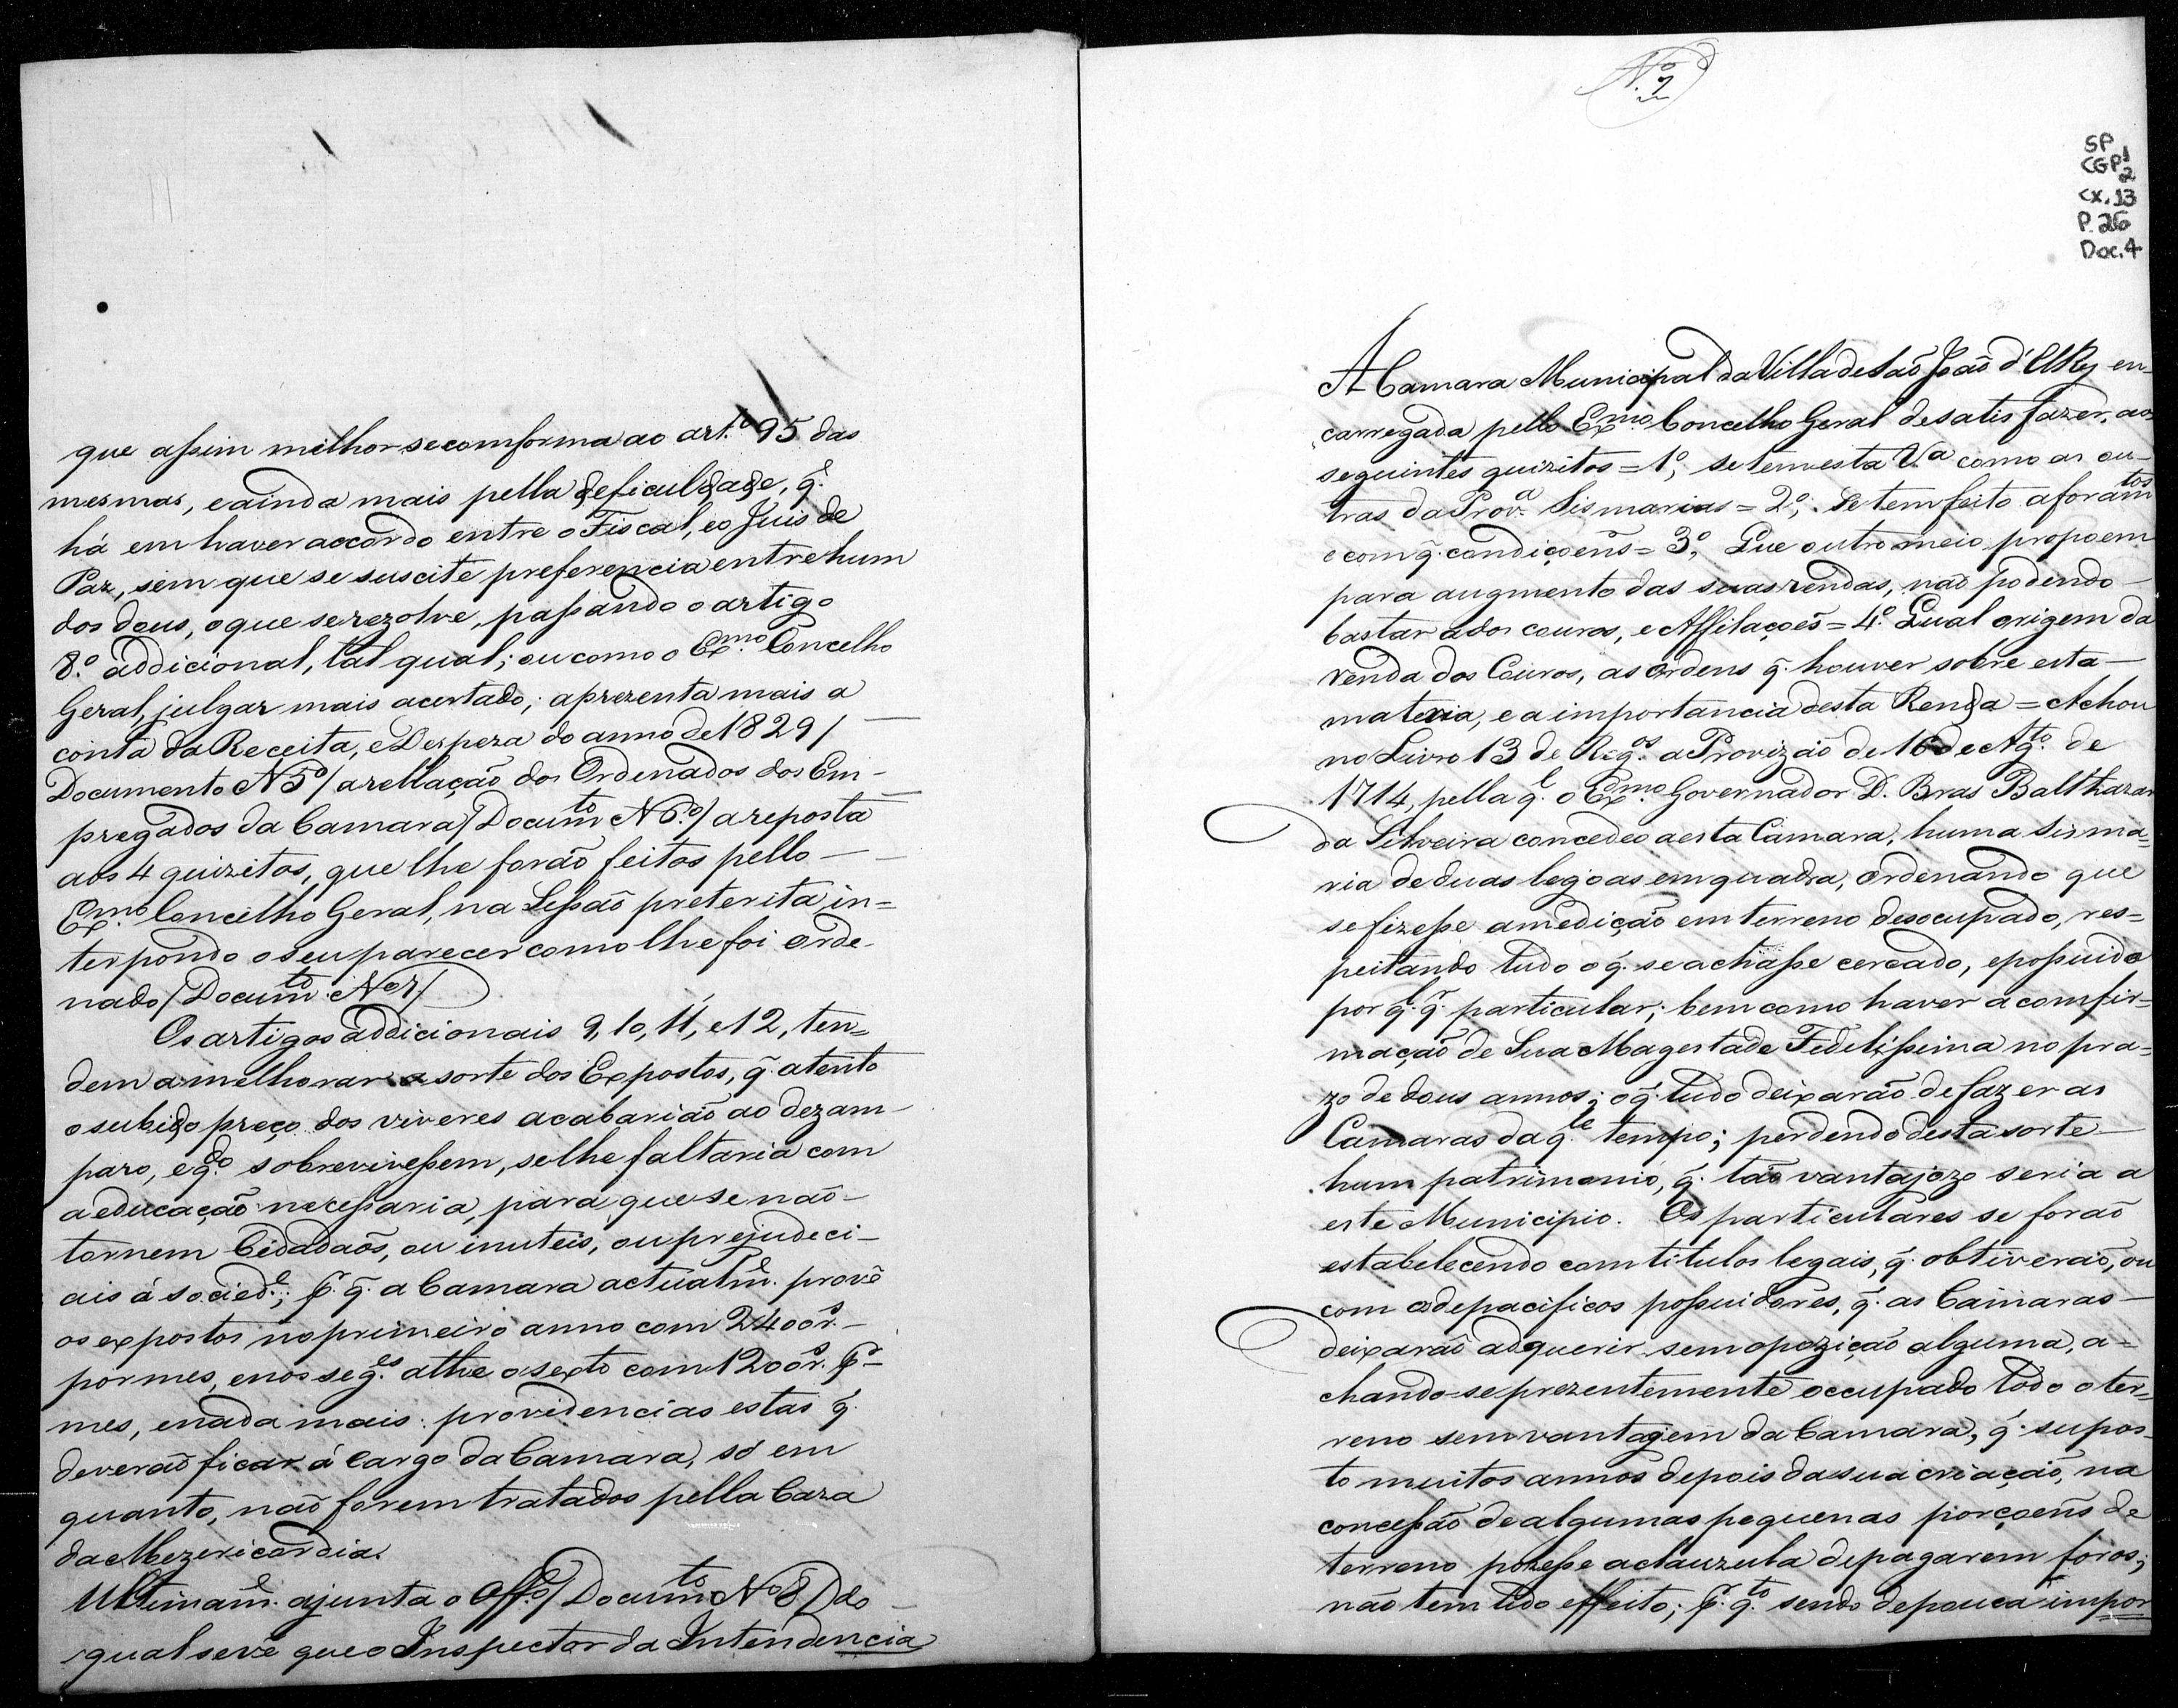 que assim milhor se comforma ao art.to 95 das
mesmas, e ainda mais pella deficuldade, q̃.
há em haver accordo entre o Fiscal, e o Juis de
Paz, sem que se suscite preferencia entre hum
dos dous, o que se rezolve, passando o artigo
8.º addicional, tal qual; ou como o Ex.mo Concelho
Geral, julgar mais acertado; aprezenta mais a
conta da Receita, e Despeza do anno de 1829 /
Documento Nº 5 / a rellação dos Ordenados dos Em-
pregados da Camara / Docum.to Nº 6 / a reposta
aos 4 quizitos, que lhe forão feitos pello
Ex.mo Concelho Geral, na Sessão preterita in=
terpondo o seu parecer como lhe foi orde-
nado / Docum.to Nº 7 /
Os artigos addicionais 9, 10, 11, e 12, ten=
dem a melhorar a sorte dos Expostos, q̃. atento
o subido preço dos viveres acabarião ao dezam-
paro, e q.do sobrevivessem, se lhe faltaria com
a educação necessaria, para que se não
tornem Cidadaõs, ou inuteis, ou prejudeci-
ais á socied.e; p.r q̃. a Camara actualm.e provê
os expostos no primeiro anno com 2400 r.s
por mes, e nos seg.es athe o sexto com 1200 r.s p.r
mes, e nada mais: providencias estas q̃.
deverão ficar á cargo da Camara, só em
quanto, não forem tratados pella Caza
da Mezericordia.
Ultimam.e ajunta o Off.o / Docum.to Nº 8 / do
qual se vê que o Inspector da Intendencia
Nº 7
SP
CGP1
2
Cx. 13
P. 26
Doc. 4
A Camara Municipal da Villa de São João d'ElRey en-
carregada pello Ex.mo Concelho Geral de satisfazer, aos
seguintes quizitos = 1º, se tem esta V.a como as ou-
tras da Prov.a Sismarias = 2º; Se tem feito aforam.tos
e com q̃. condiçoens = 3º, Que outro meio propoem
para augmento das suas rendas, não podendo
bastar a dos couros, e Affilaçoẽs = 4º. Qual origem da
renda dos Couros, as ordens q̃. houver sobre esta
materia, e a importancia desta Renda = Achou
no Livro 13 de Reg.os a Provizão de 16 de Ag.to de
1714, pella q.l o Ex.mo Governador D. Bras Balthazar
da Silveira concedeo a esta Camara, huma Sisma=
ria de duas legoas em quadra, ordenando que
se fizesse a medição em terreno desocupado, res=
peitando tudo o q̃. se achasse cercado, e possuido
por q.l q.r particular; bem como haver a comfir=
mação de Sua Magestade Fedelissima no pra=
zo de dous annos; o q̃. tudo deixarão de fazer as
Camaras daq.le tempo; perdendo desta sorte
hum patrimonio, q̃. tão vantajozo seria a
este Municipio. Os particulares se forão
estabelecendo com titulos legais, q̃. obtiverão, ou
com os de pacificos possuidores, q̃. as Camaras
deixarão adquerir sem opozição alguma, a=
chando-se prezentemente occupado todo o ter-
reno sem vantagem da Camara, q̃. supos-
to muitos annos depois da sua criação, na
concessão de algumas pequenas porçoens de
terreno pozesse a clauzula de pagarem foros;
não tem tido effeito; p.r q.to sendo de pouca impor